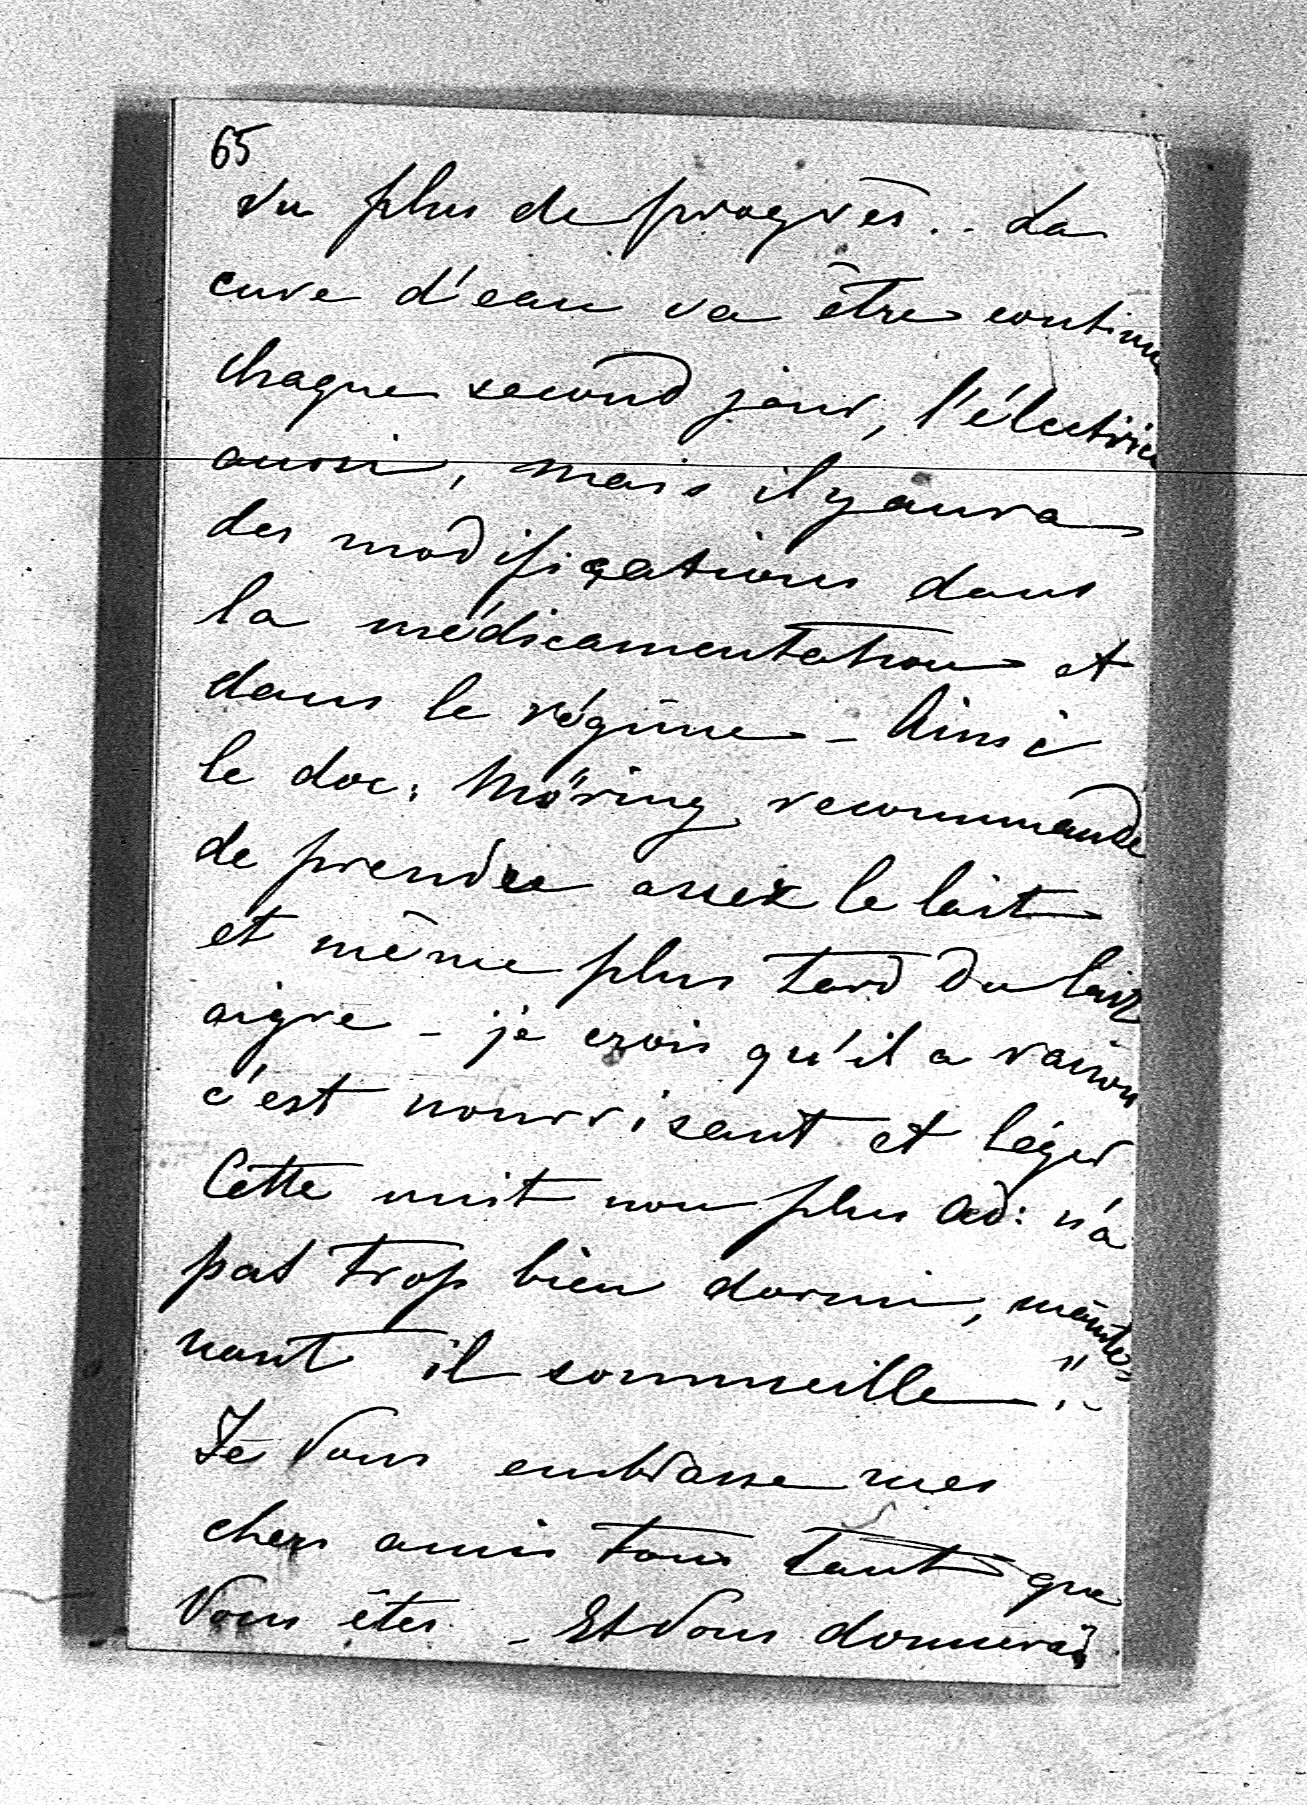 65
vu plus de progrès.. La
cure d'eau va être continu
chaque second jour, l'électric
aussi, mais il y aura
des modifications dans
la médicamentation et
dans le régime - Ainsi
le doc: Möring recommande
de prendre assez le lait
et même plus tard du lait
aigre - je crois qu'il a raison
c'est nourrisant et léger
Cette nuit non plus Ad: n'a
pas trop bien dormi, mainte=
nant il sommeille
Je Vous embrasse mes
chers amis tous tant que
Vous êtes - Et Vous donnerai